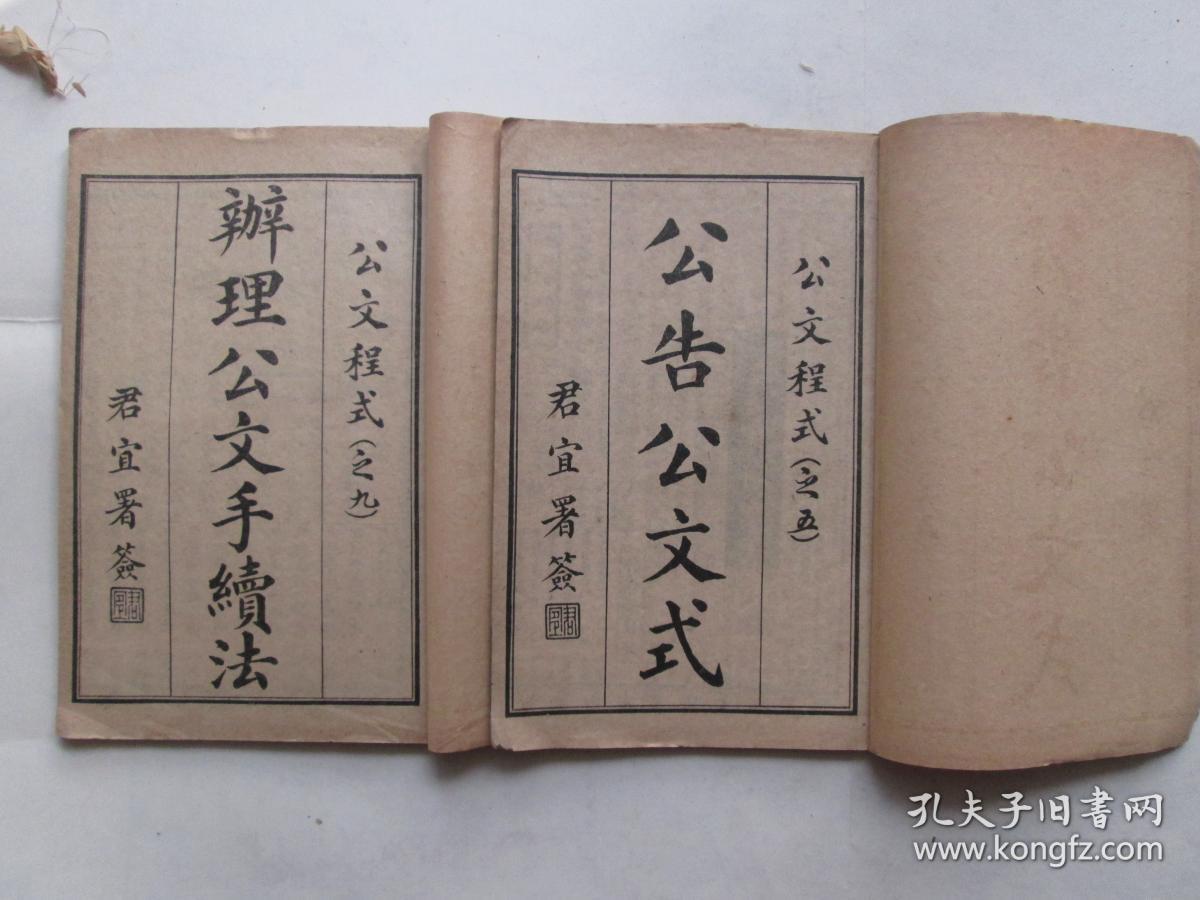 公文程式(之五)
公告公文式
君宜署簽
公文程式(之九)
辦理公文手續法
君宜署簽
孔夫子旧书网
www.kongfz.com